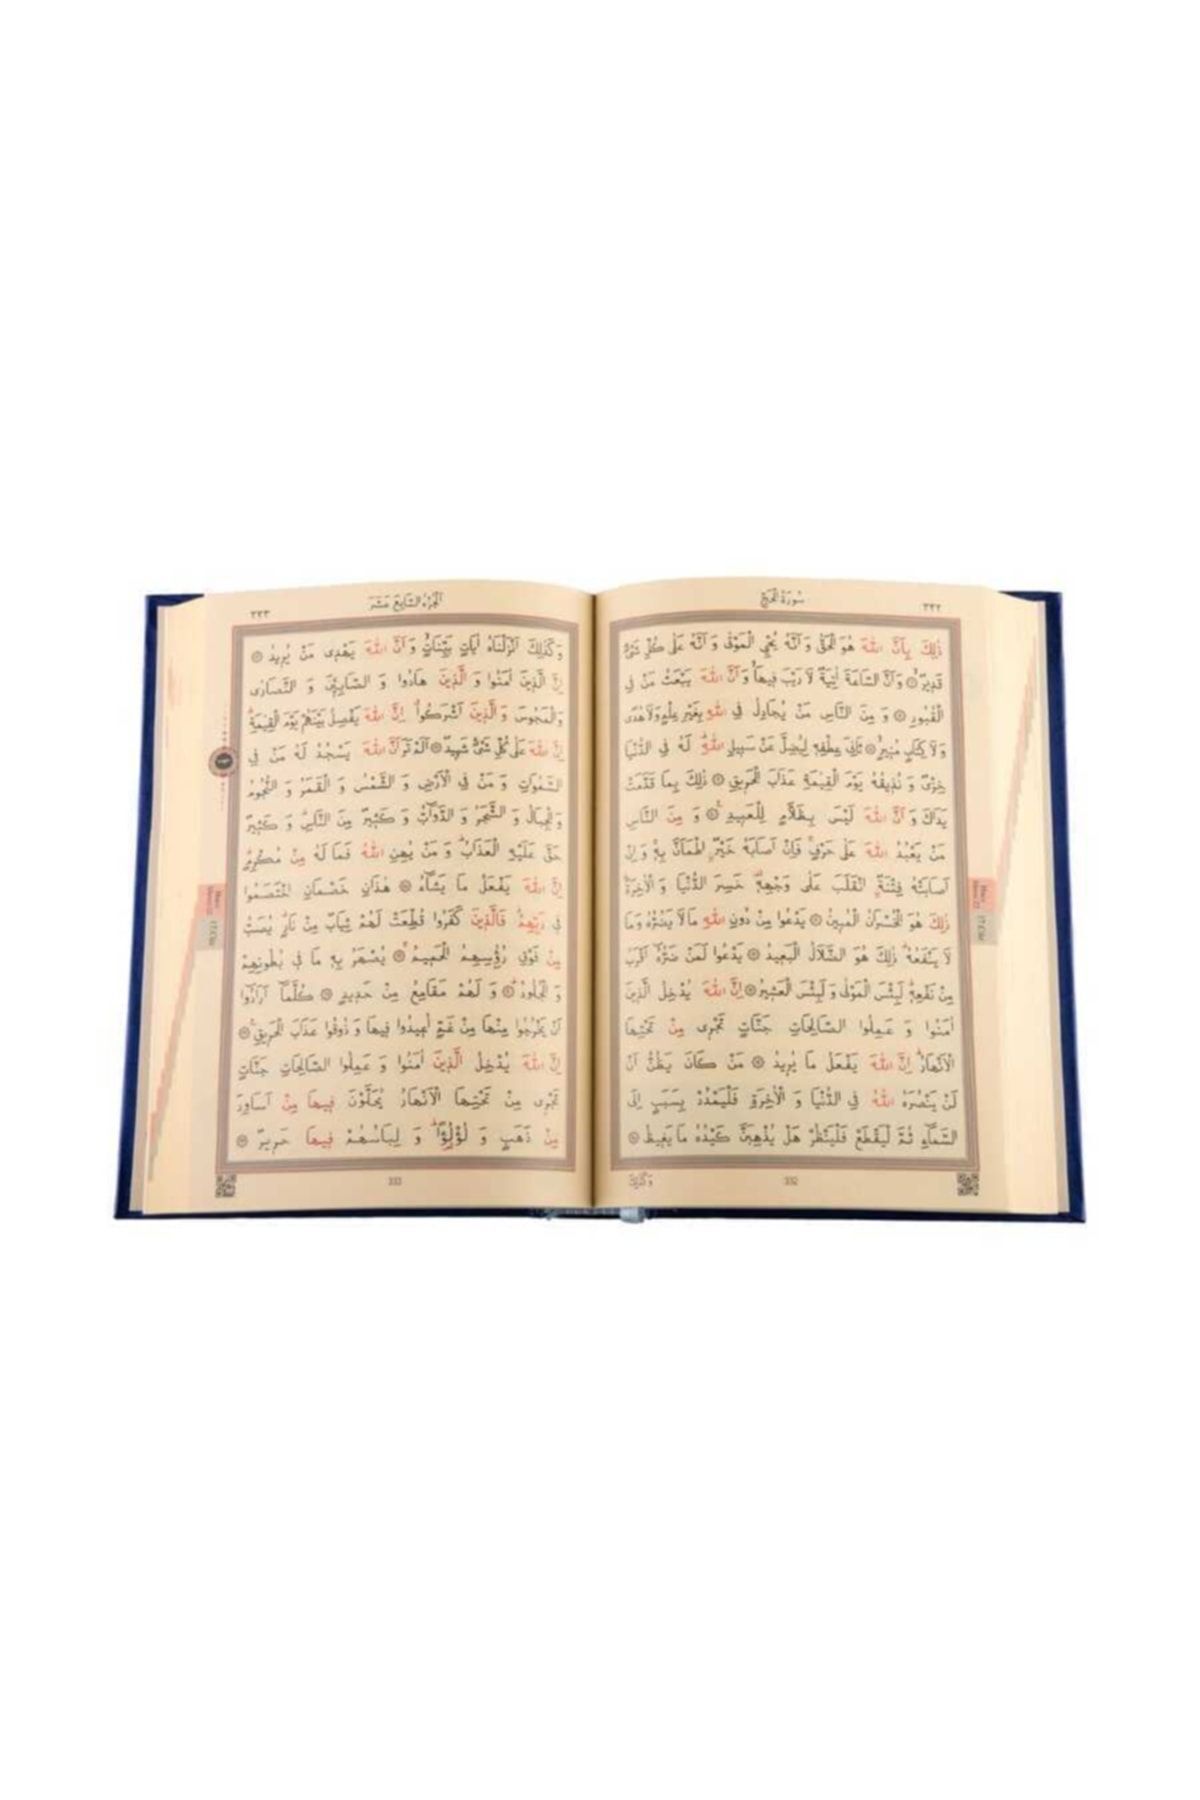 سُورَةُ الْحَجِّ
٣٣٢
ذٰلِكَ بِاَنَّ اللّٰهَ هُوَ الْحَقُّ وَاَنَّهُ يُحْيِ الْمَوْتٰى وَاَنَّهُ عَلٰى كُلِّ شَيْءٍ
قَدِيرٌ ۞ وَاَنَّ السَّاعَةَ اٰتِيَةٌ لَا رَيْبَ فِيهَا وَاَنَّ اللّٰهَ يَبْعَثُ مَنْ فِي
الْقُبُورِ ۞ وَمِنَ النَّاسِ مَنْ يُجَادِلُ فِي اللّٰهِ بِغَيْرِ عِلْمٍ وَلَا هُدًى
وَلَا كِتَابٍ مُنِيرٍ ۞ ثَانِيَ عِطْفِهِ لِيُضِلَّ عَنْ سَبِيلِ اللّٰهِ لَهُ فِي الدُّنْيَا
خِزْيٌ وَنُذِيقُهُ يَوْمَ الْقِيٰمَةِ عَذَابَ الْحَرِيقِ ۞ ذٰلِكَ بِمَا قَدَّمَتْ
يَدَاكَ وَاَنَّ اللّٰهَ لَيْسَ بِظَلَّامٍ لِلْعَبِيدِ ۞ وَمِنَ النَّاسِ
مَنْ يَعْبُدُ اللّٰهَ عَلٰى حَرْفٍ فَاِنْ اَصَابَهُ خَيْرٌ اطْمَاَنَّ بِهِ وَاِنْ
اَصَابَتْهُ فِتْنَةٌ انْقَلَبَ عَلٰى وَجْهِهِ خَسِرَ الدُّنْيَا وَالْاٰخِرَةَ
ذٰلِكَ هُوَ الْخُسْرَانُ الْمُبِينُ ۞ يَدْعُوا مِنْ دُونِ اللّٰهِ مَا لَا يَضُرُّهُ وَمَا
لَا يَنْفَعُهُ ذٰلِكَ هُوَ الضَّلَالُ الْبَعِيدُ ۞ يَدْعُوا لَمَنْ ضَرُّهُ اَقْرَبُ
مِنْ نَفْعِهِ لَبِئْسَ الْمَوْلٰى وَلَبِئْسَ الْعَشِيرُ ۞ اِنَّ اللّٰهَ يُدْخِلُ الَّذِينَ
اٰمَنُوا وَعَمِلُوا الصَّالِحَاتِ جَنَّاتٍ تَجْرِي مِنْ تَحْتِهَا
الْاَنْهَارُ اِنَّ اللّٰهَ يَفْعَلُ مَا يُرِيدُ ۞ مَنْ كَانَ يَظُنُّ اَنْ
لَنْ يَنْصُرَهُ اللّٰهُ فِي الدُّنْيَا وَالْاٰخِرَةِ فَلْيَمْدُدْ بِسَبَبٍ اِلَى
السَّمَاءِ ثُمَّ لْيَقْطَعْ فَلْيَنْظُرْ هَلْ يُذْهِبَنَّ كَيْدُهُ مَا يَغِيظُ ۞
332
وَكَذٰلِكَ
اَلْجُزْءُ السَّابِعَ عَشَرَ
٣٣٣
وَكَذٰلِكَ اَنْزَلْنَاهُ اٰيَاتٍ بَيِّنَاتٍ وَاَنَّ اللّٰهَ يَهْدِي مَنْ يُرِيدُ ۞
اِنَّ الَّذِينَ اٰمَنُوا وَالَّذِينَ هَادُوا وَالصَّابِئِينَ وَالنَّصَارٰى
وَالْمَجُوسَ وَالَّذِينَ اَشْرَكُوا اِنَّ اللّٰهَ يَفْصِلُ بَيْنَهُمْ يَوْمَ الْقِيٰمَةِ
اِنَّ اللّٰهَ عَلٰى كُلِّ شَيْءٍ شَهِيدٌ ۞ اَلَمْ تَرَ اَنَّ اللّٰهَ يَسْجُدُ لَهُ مَنْ فِي
السَّمٰوَاتِ وَمَنْ فِي الْاَرْضِ وَالشَّمْسُ وَالْقَمَرُ وَالنُّجُومُ
وَالْجِبَالُ وَالشَّجَرُ وَالدَّوَابُّ وَكَثِيرٌ مِنَ النَّاسِ وَكَثِيرٌ
حَقَّ عَلَيْهِ الْعَذَابُ وَمَنْ يُهِنِ اللّٰهُ فَمَا لَهُ مِنْ مُكْرِمٍ
اِنَّ اللّٰهَ يَفْعَلُ مَا يَشَاءُ ۞ هٰذَانِ خَصْمَانِ اخْتَصَمُوا
فِي رَبِّهِمْ فَالَّذِينَ كَفَرُوا قُطِّعَتْ لَهُمْ ثِيَابٌ مِنْ نَارٍ يُصَبُّ
مِنْ فَوْقِ رُؤُسِهِمُ الْحَمِيمُ ۞ يُصْهَرُ بِهِ مَا فِي بُطُونِهِمْ
وَالْجُلُودُ ۞ وَلَهُمْ مَقَامِعُ مِنْ حَدِيدٍ ۞ كُلَّمَا اَرَادُوا
اَنْ يَخْرُجُوا مِنْهَا مِنْ غَمٍّ اُعِيدُوا فِيهَا وَذُوقُوا عَذَابَ الْحَرِيقِ ۞
اِنَّ اللّٰهَ يُدْخِلُ الَّذِينَ اٰمَنُوا وَعَمِلُوا الصَّالِحَاتِ جَنَّاتٍ
تَجْرِي مِنْ تَحْتِهَا الْاَنْهَارُ يُحَلَّوْنَ فِيهَا مِنْ اَسَاوِرَ
مِنْ ذَهَبٍ وَلُؤْلُؤًا وَلِبَاسُهُمْ فِيهَا حَرِيرٌ ۞
333